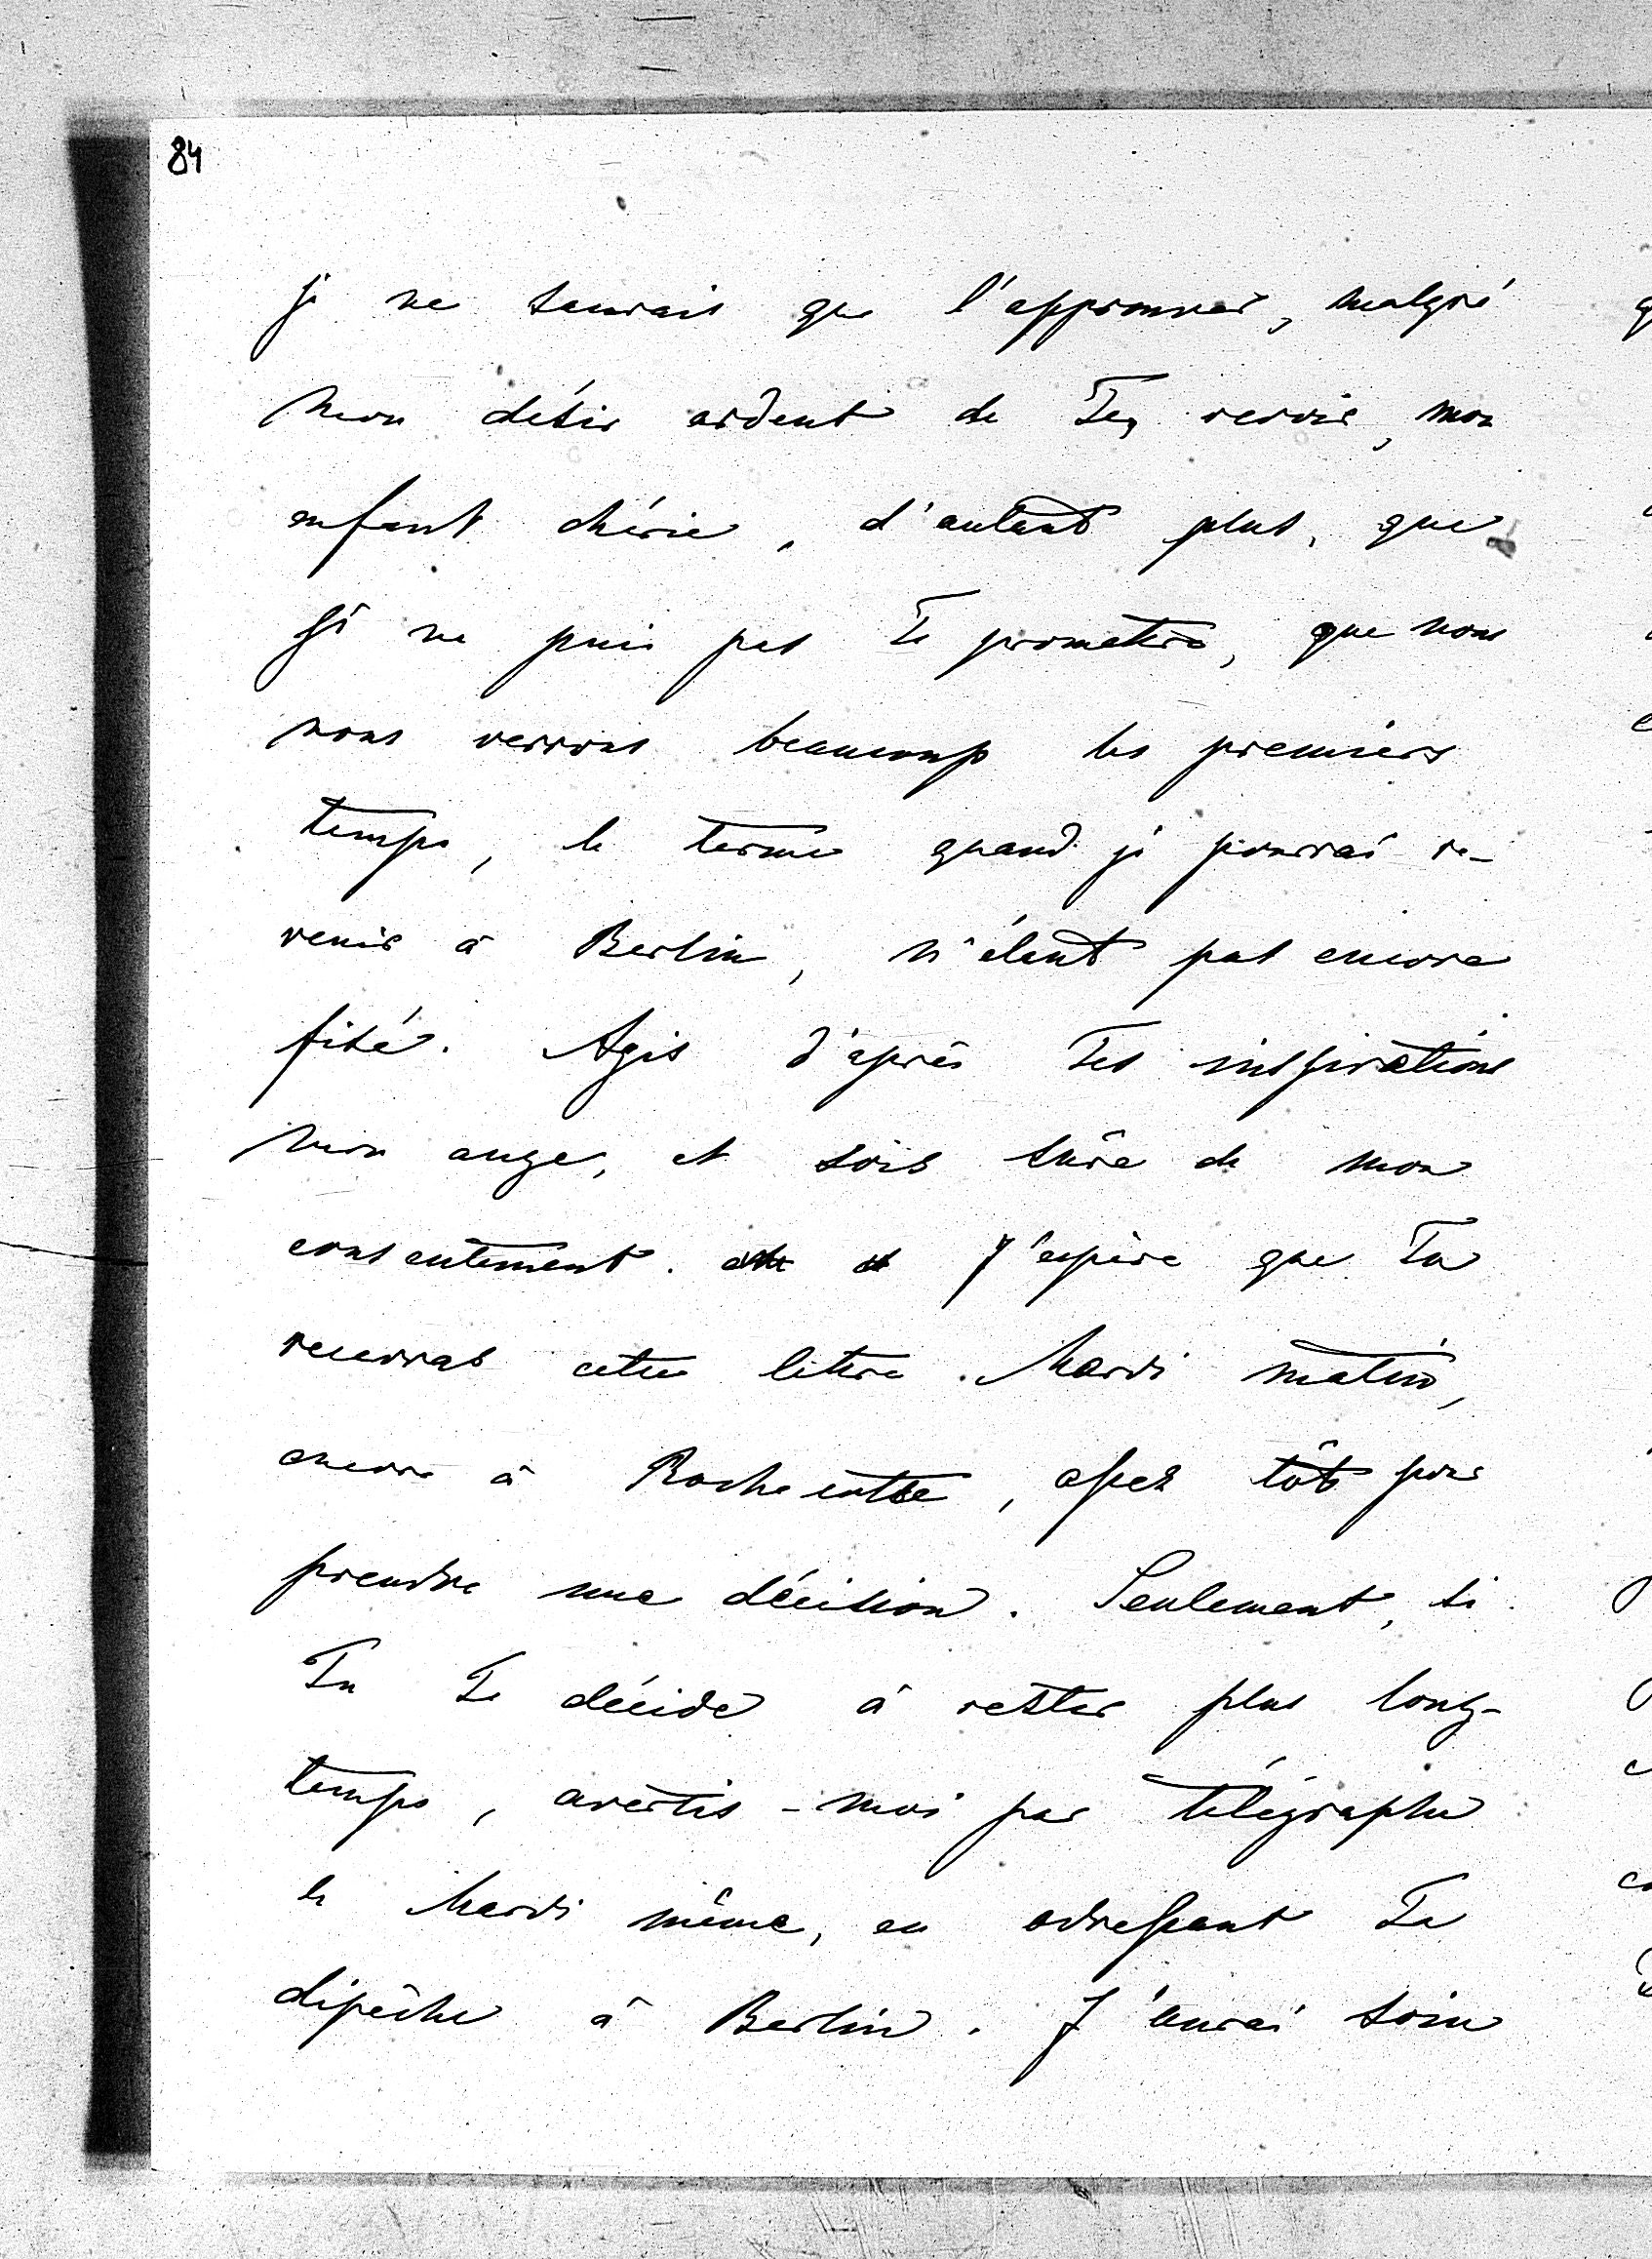 84
je ne saurais que l'approuver, malgré
mon désir ardent de Te revoir, mon
enfant chérie, d'autant plus, que
je ne puis pas Te promettre, que nous
nous verrons beaucoup les premiers
temps, le terme quand je pourrai re-
venir à Berlin, n'étant pas encore
fixé. Agis d'après Tes inspirations
mon ange, et sois sûre de mon
consentement. J'espère que Tu
recevras cette lettre Mardi matin,
encore à Rochecotte, assez tôt pour
prendre une décision. Seulement, si
Tu Te décide à rester plus long-
temps, avertis-moi par télégraphe
le Mardi même, en adressant Ta
dépêche à Berlin. J'aurai soin